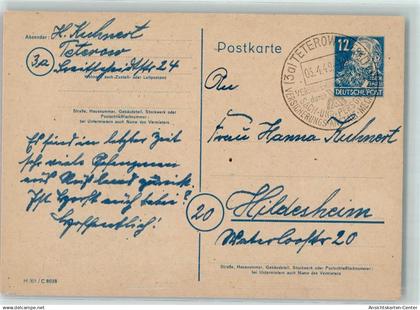 Absender: H. Kuhnert
Teterow
3a
Breitscheidstr. 24
Wohnort, auch Zustell- oder Leitpostamt
Straße, Hausnummer, Gebäudeteil, Stockwerk oder
Postschließfachnummer;
bei Untermietern auch Name des Vermieters
Es sind in letzter Zeit
so viele
aus Rußland zurück.
Ist Horst auch dabei?
Hoffentlich!
M 301 / C 8088
Postkarte
12
DEUTSCHE POST
(3a) TETEROW
An
Frau Hanna Kuhnert
20
Hildesheim
Waterloostr 20
Straße, Hausnummer, Gebäudeteil, Stockwerk oder Postschließfachnummer;
bei Untermietern auch Name des Vermieters
Ansichtskarten-Center